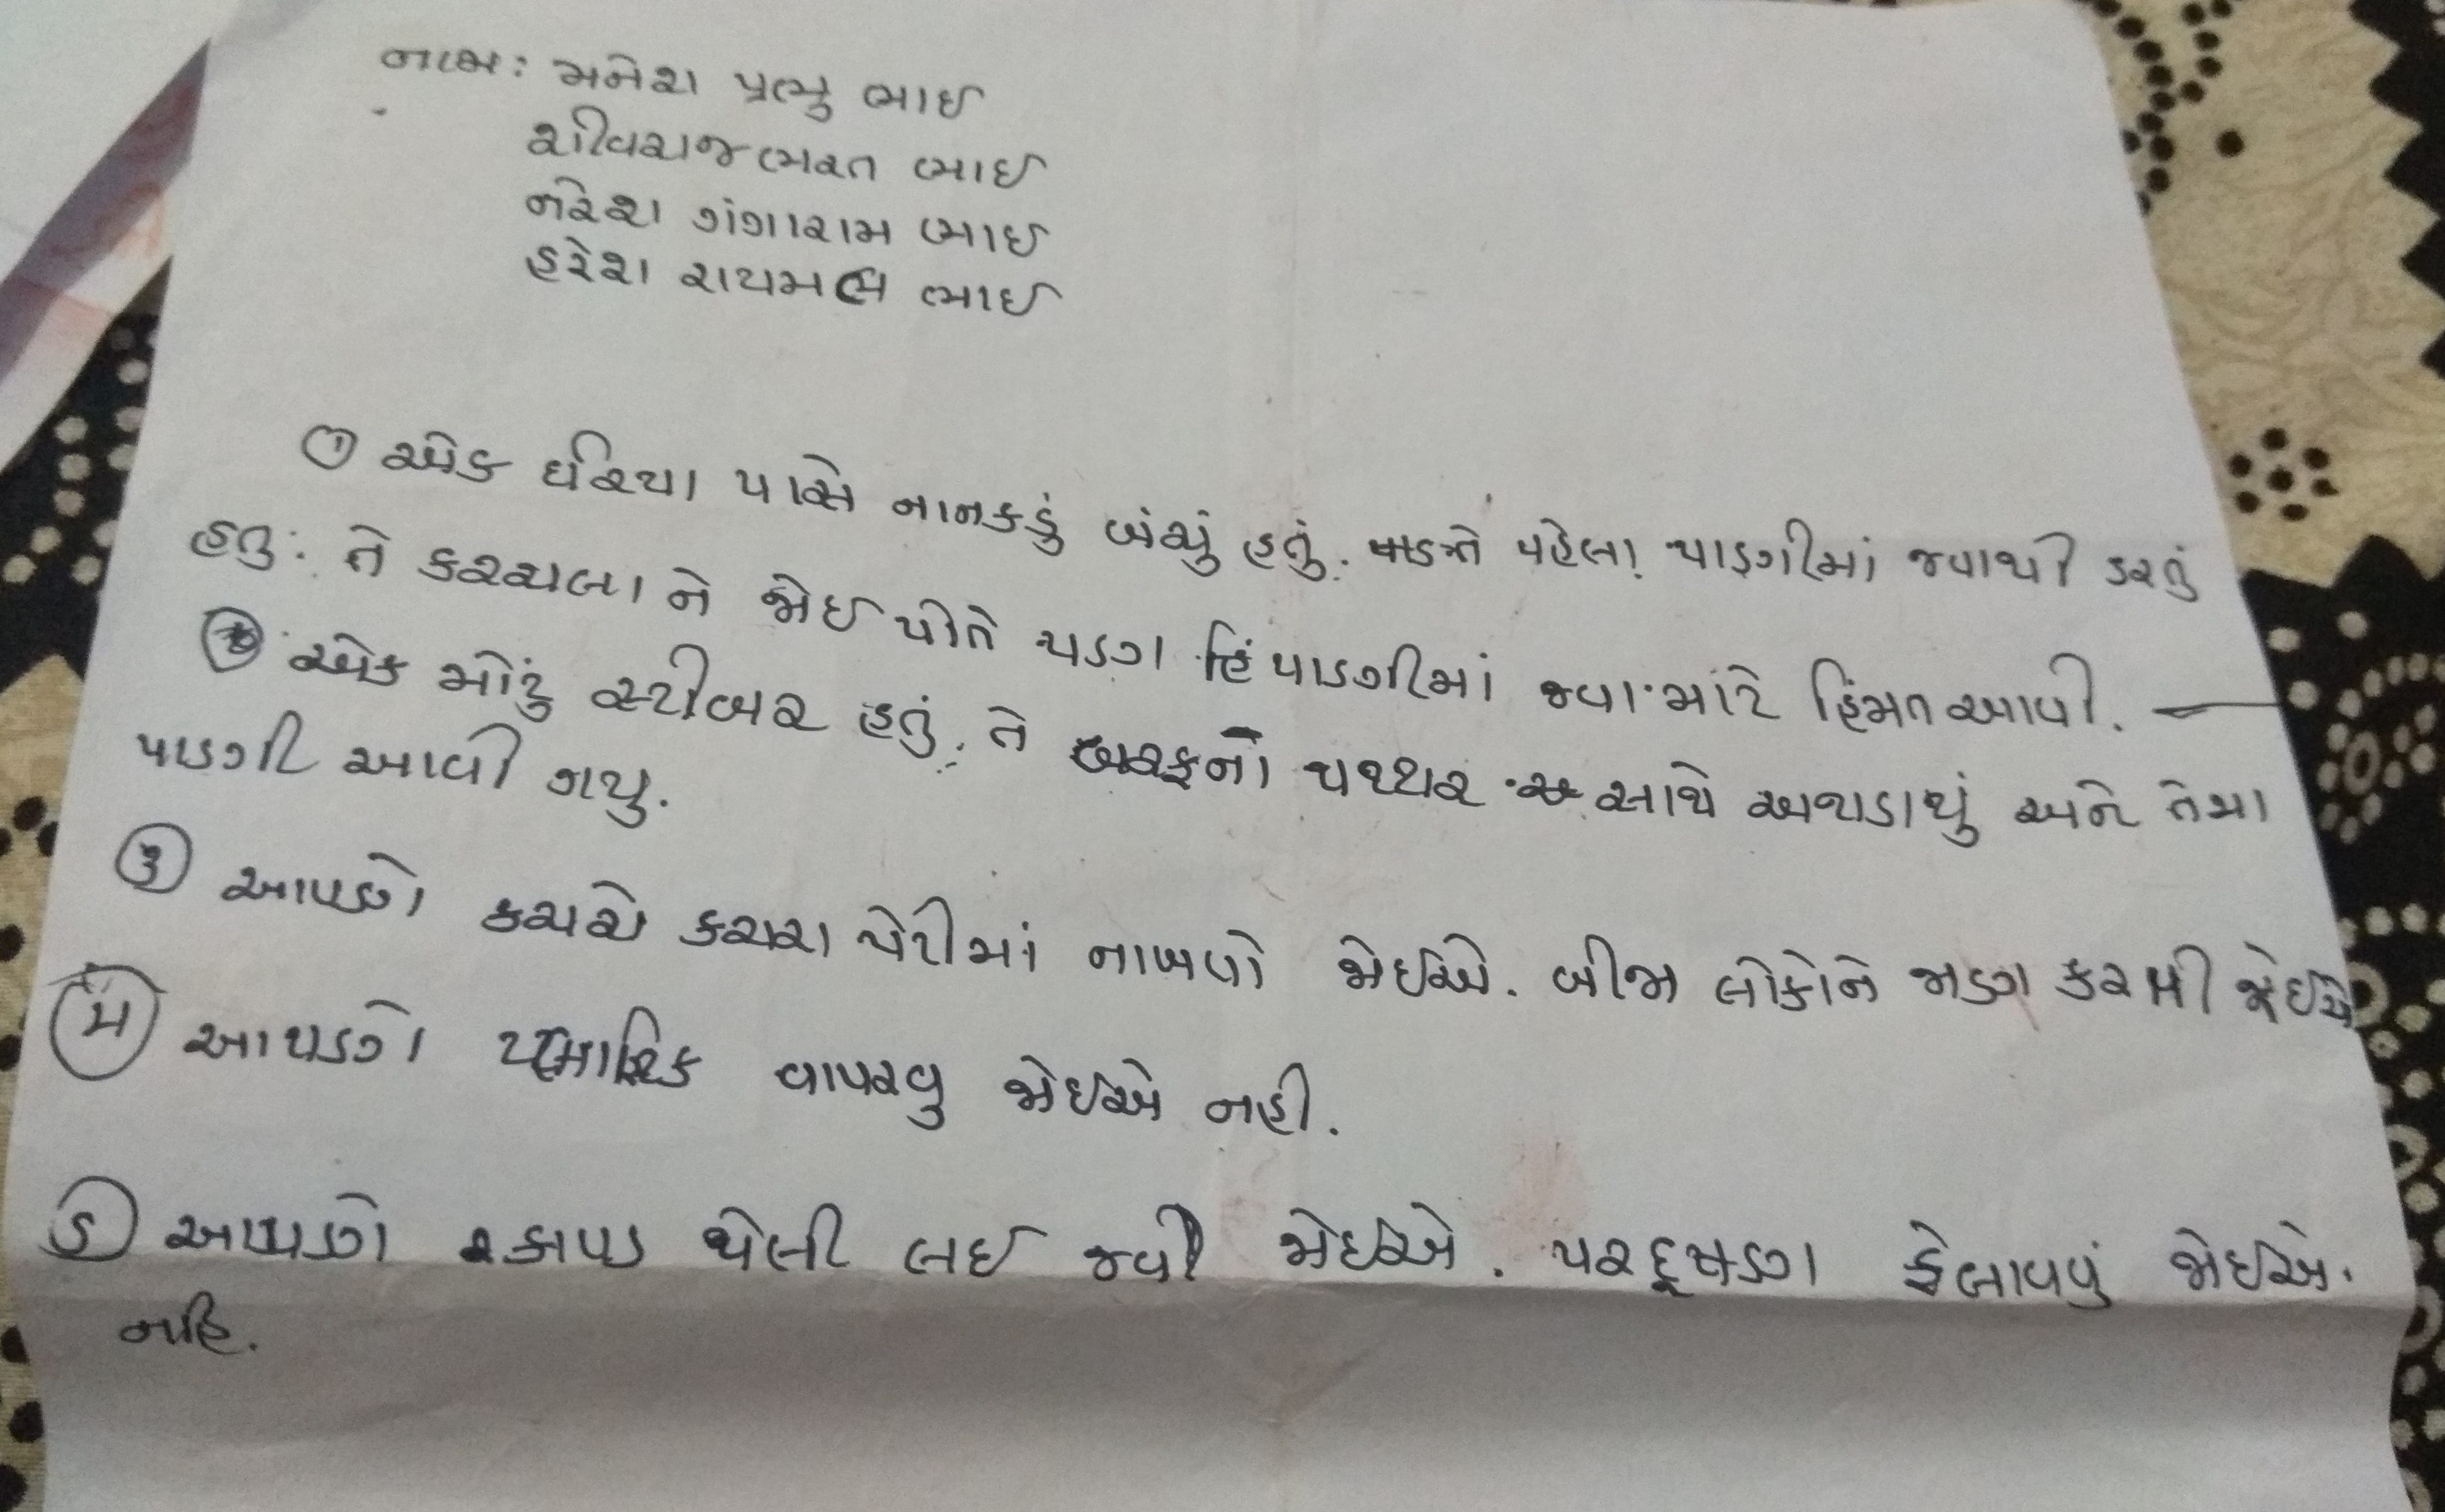 નામ: મનેશ પ્રભુ ભાઈ
શીવરાજ ભરત ભાઈ
નરેશ ગંગારામ ભાઈ
હરેશ રાયમલ ભાઈ
① એક ધરિયા પાસે નાનકડું બંચું હતું. પહેલા પાડગીમાં જવાથી ડરતું
હતુ. તે કરચલા ને જોઈ પોતે પડણ પાડગીમાં જવા માટે હિંમત આપી.
એક મોટું સ્ટીબર હતું. તે બરફનો પથ્થર સાથે અથડાયું અને તેમા
પાડગી આવી ગયુ.
③ આપણે કચરો કચરા પેટીમાં નાખવો જોઈએ. બીજા લોકોને જાડણ કરવી જોઈએ
આપડણે વાપરવુ જોઈએ નહી.
આપણે કાપડ થેલી લઈ જવી જોઈએ. પરદૂષડણ ફેલાવવું જોઈએ.
નહિ.